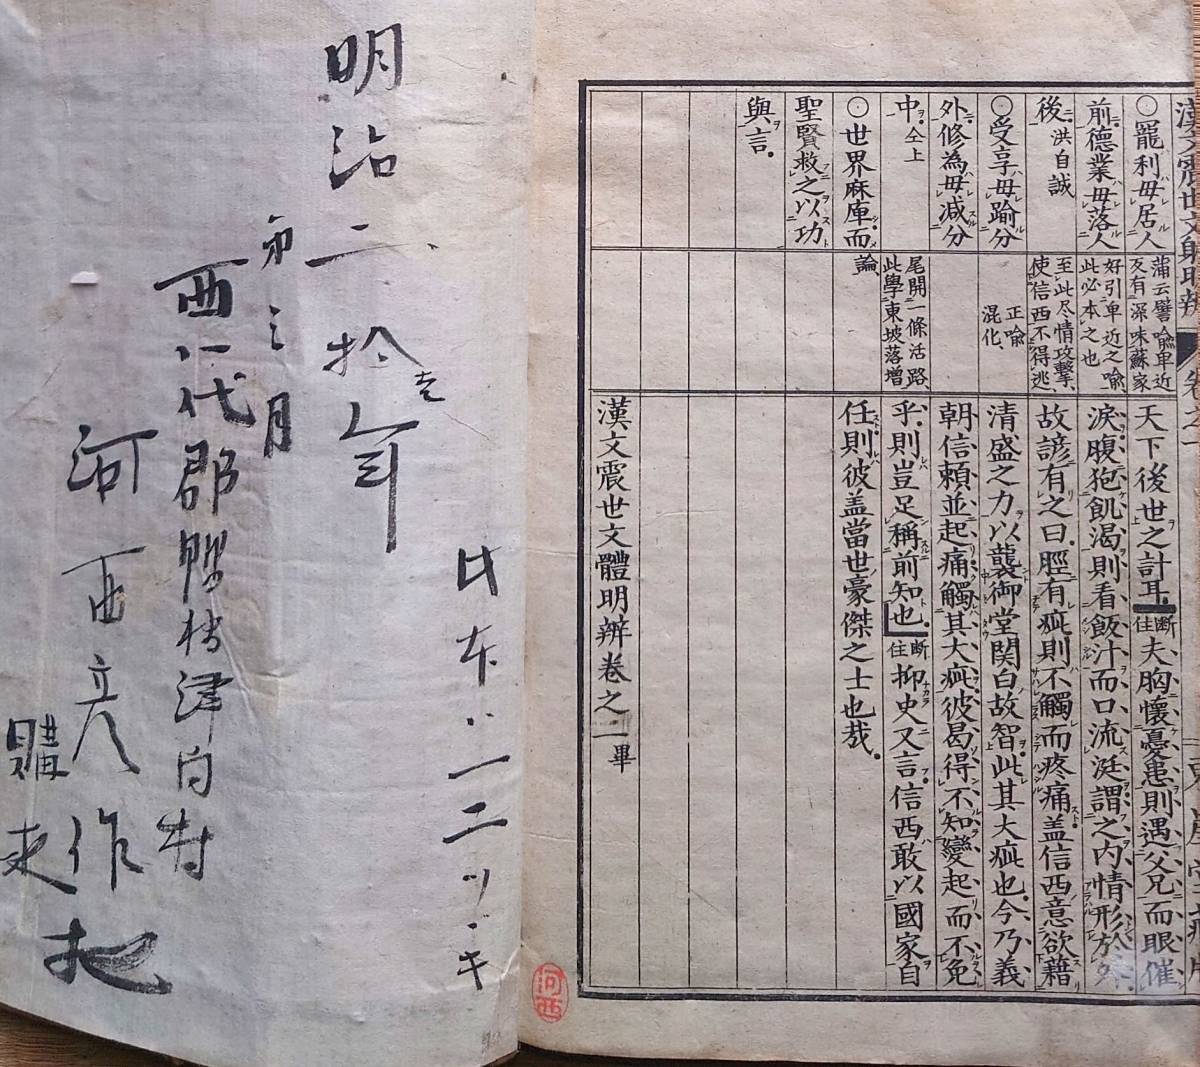 ○寵利毋居人
前德業毋落人
後。洪自誠
○受享毋踰分
外修為毋減分
中。仝上
○世界麻庫而
聖賢救之以功
與言。
蒲云譬喩卑近
有深味蘇家
好引卑近之喩
此必本之也
至此尽情攻擊、
使信西不得逃、
正喩
混化、
尾開一條活路、
此學東坡落增
論、
天下後世之計耳。断住夫胸懷憂患則遇父兄而眼催
淚腹抱飢渴則看飯汁而口流涎謂之内情形於外。
故諺有之曰。脛有疵則不觸而疼痛盖信西意欲藉
清盛之力以襲御堂関白故智此其大疵也今乃義
朝信賴並起痛觸其大疵彼曷得不知變起而不免
乎則豈足稱前知也。断住抑史又言信西敢以國家自
任則彼盖當世豪傑之士也哉。
漢文震世文體明辨卷之一畢
此本ハ一二ツヾキ
明治二拾壱年
第三月
西八代郡鴨狩津向村
河西彦作
購求
也
河西